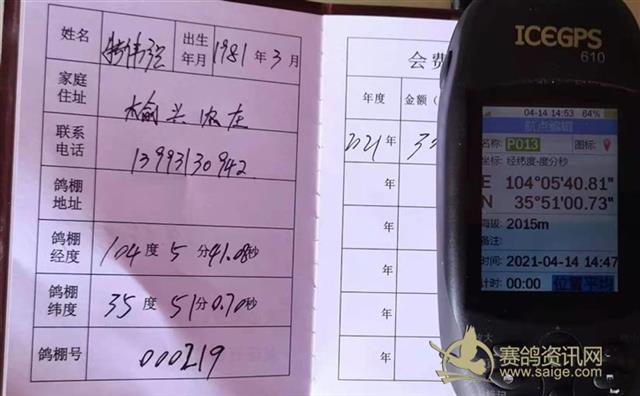 姓名 伟强 出生年月 1981年3月
家庭住址 榆兴农庄
联系电话 13993130942
鸽棚地址
鸽棚经度 104度5分41.08秒
鸽棚纬度 35度51分0.70秒
鸽棚号 000219
会费
年度 金额(
2021年 3
年
年
年
年
年
ICEGPS
610
04-14 14:53 64%
航点编辑
名称: P013 图标:
坐标: 经纬度-度分秒
E 104°05'40.81"
N 35°51'00.73"
海拔: 2015m
备注:
时间: 2021-04-14 14:47
计时: 00:00 位置平均
赛鸽资讯网
www.saige.com